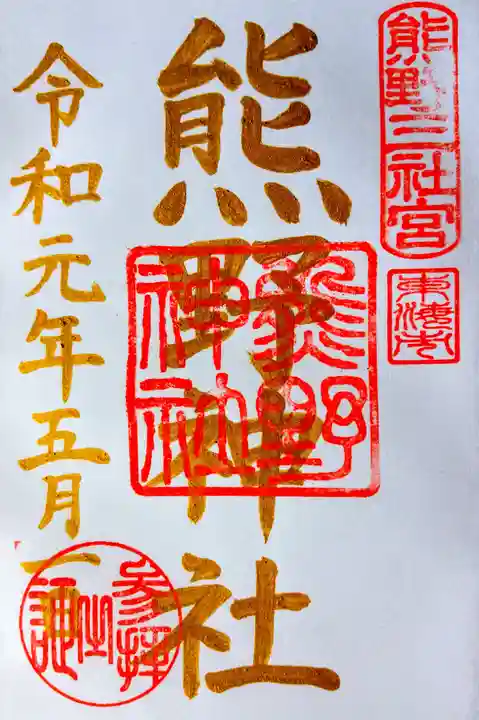 熊野三社宮
東海市
熊野神社
熊野神社
令和元年五月一
参拝之証